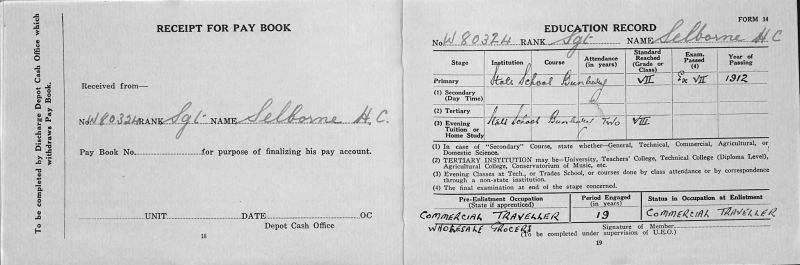 To be completed by Discharge Depot Cash Office which
withdraws Pay Book.
RECEIPT FOR PAY BOOK
Received from—
No. W80324 RANK Sgt NAME Selborne H.C.
Pay Book No. for purpose of finalizing his pay account.
UNIT DATE OC
Depot Cash Office
18
FORM 14
EDUCATION RECORD
No. W80324 RANK Sgt NAME Selborne H C
Stage Institution Course Attendance (in years) Standard Reached (Grade or Class) Exam. Passed (4) Year of Passing
Primary State School Bunbury VII Ex VII 1912
(1) Secondary (Day Time)
(2) Tertiary
(3) Evening Tuition or Home Study State School Bunbury Two VIII
(1) In case of "Secondary" Course, state whether—General, Technical, Commercial, Agricultural, or
Domestic Science.
(2) TERTIARY INSTITUTION may be—University, Teachers' College, Technical College (Diploma Level),
Agricultural College, Conservatorium of Music, etc.
(3) Evening Classes at Tech., or Trades School, or courses done by class attendance or by correspondence
through a non-state institution.
(4) The final examination at end of the stage concerned.
Pre-Enlistment Occupation (State if apprenticed) Period Engaged (in years) Status in Occupation at Enlistment
COMMERCIAL TRAVELLER 19 COMMERCIAL TRAVELLER
WHOLESALE GROCERS Signature of Member
(To be completed under supervision of U.E.O.)
19